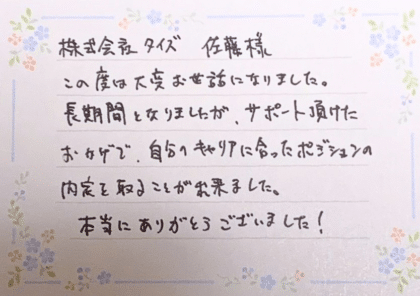 株式会社タイズ 佐藤様
この度は大変お世話になりました。
長期間となりましたが、サポート頂けた
おかげで、自分のキャリアに合ったポジションの
内定を取ることが出来ました。
本当にありがとうございました!